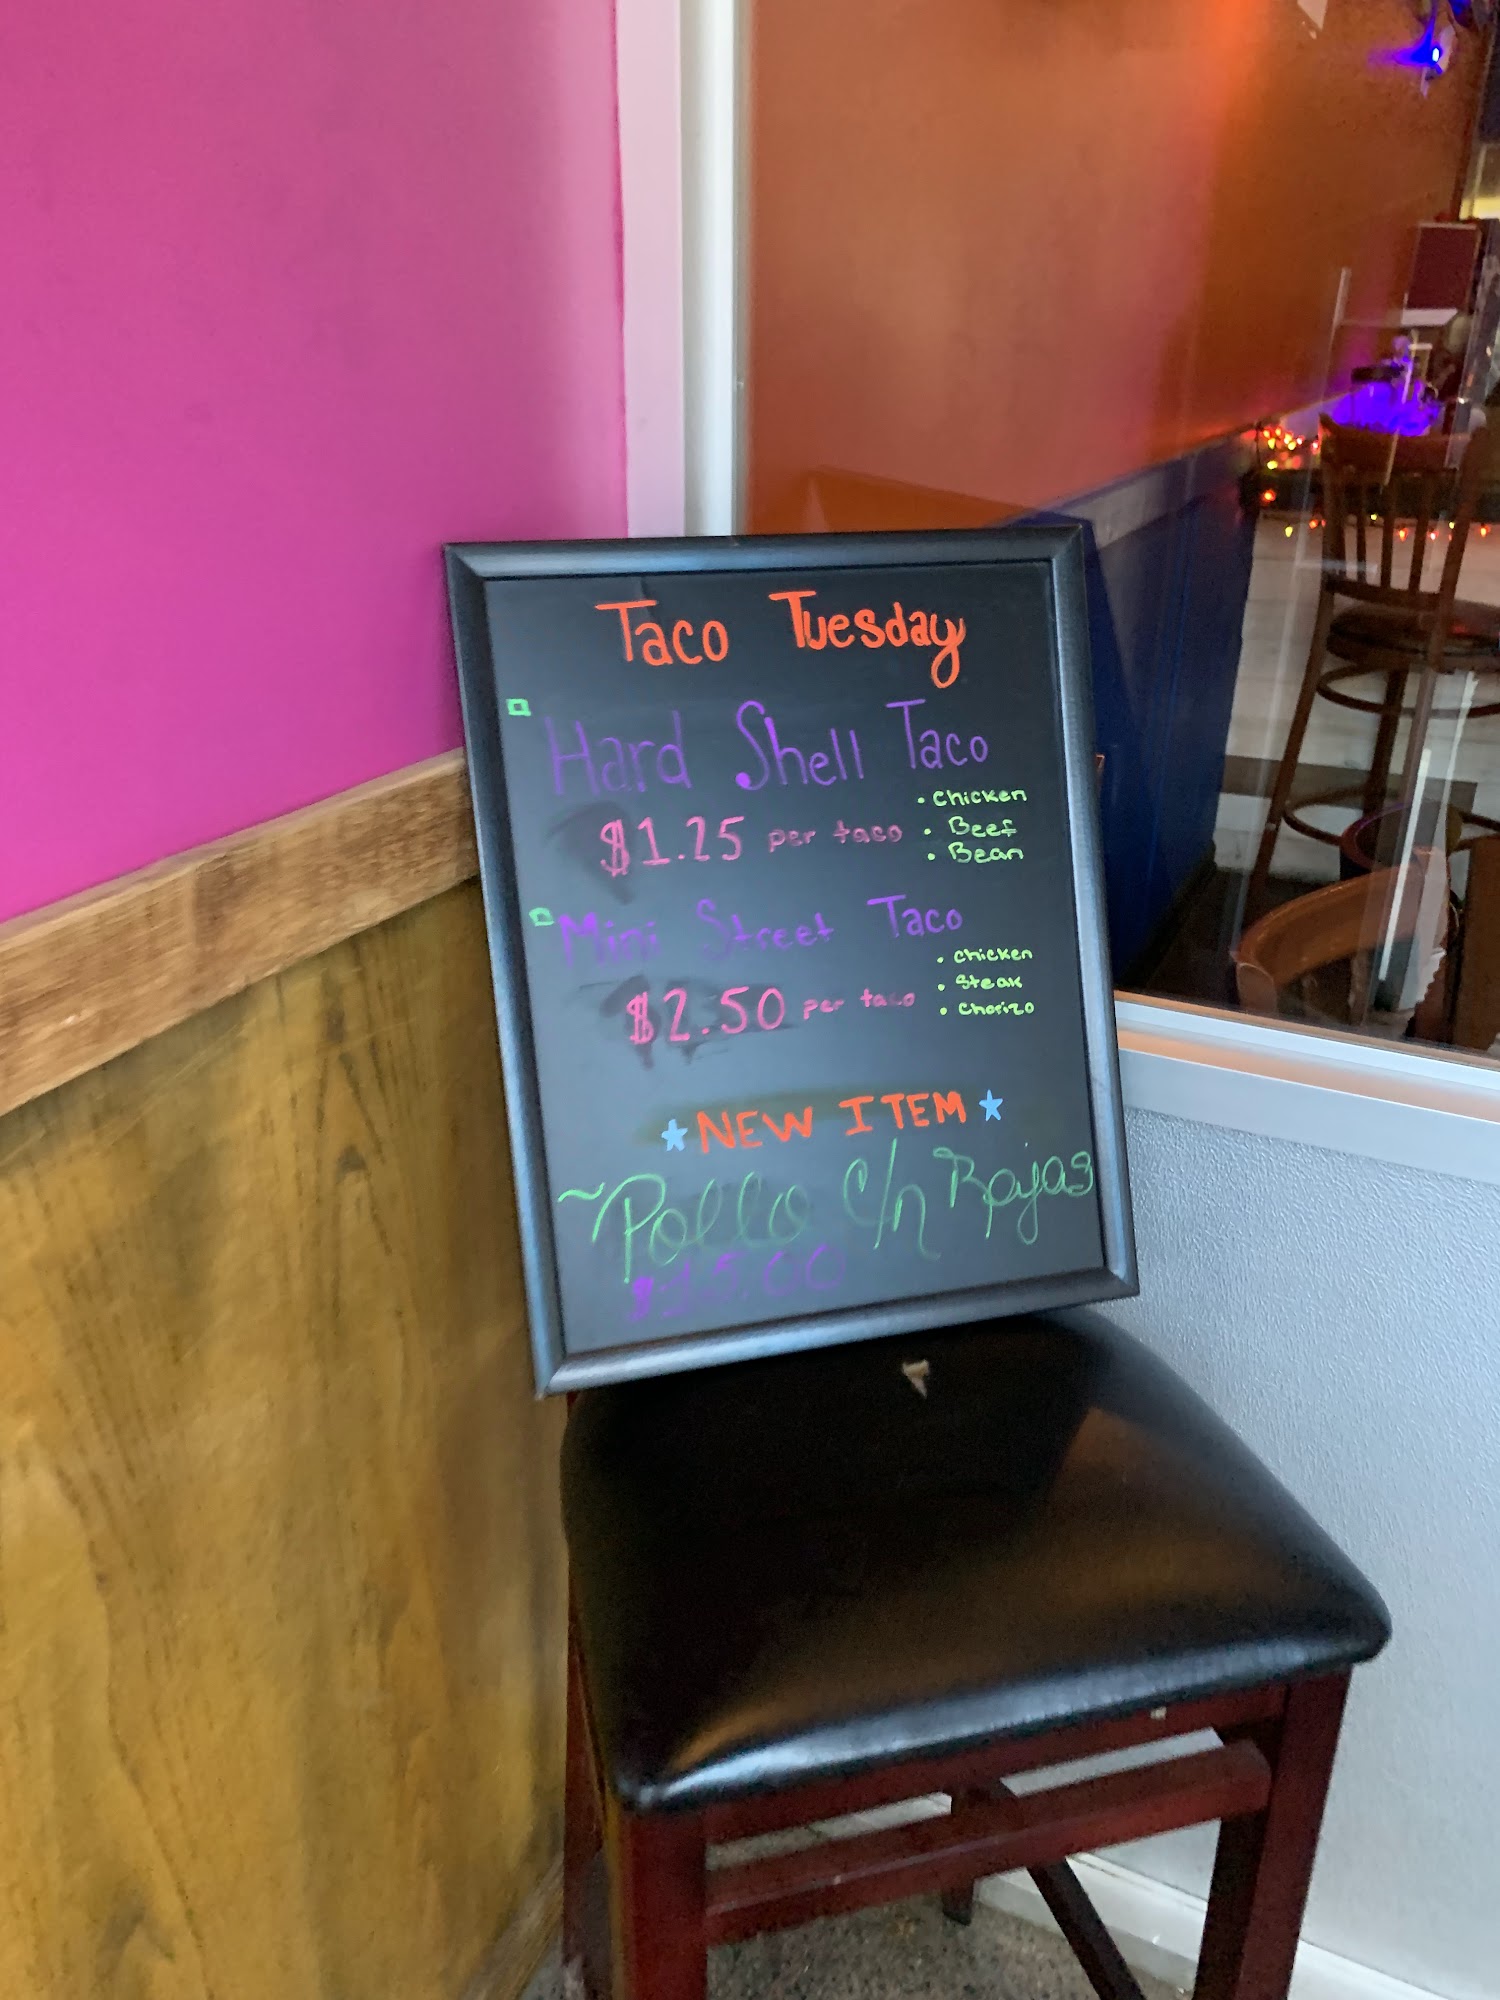 Taco Tuesday
Hard Shell Taco
$1.25 per taco
• Chicken
• Beef
• Bean
Mini Street Taco
$2.50 per taco
• Chicken
• Steak
• Chorizo
★ NEW ITEM ★
~Pollo c/n Rajas
$15.00